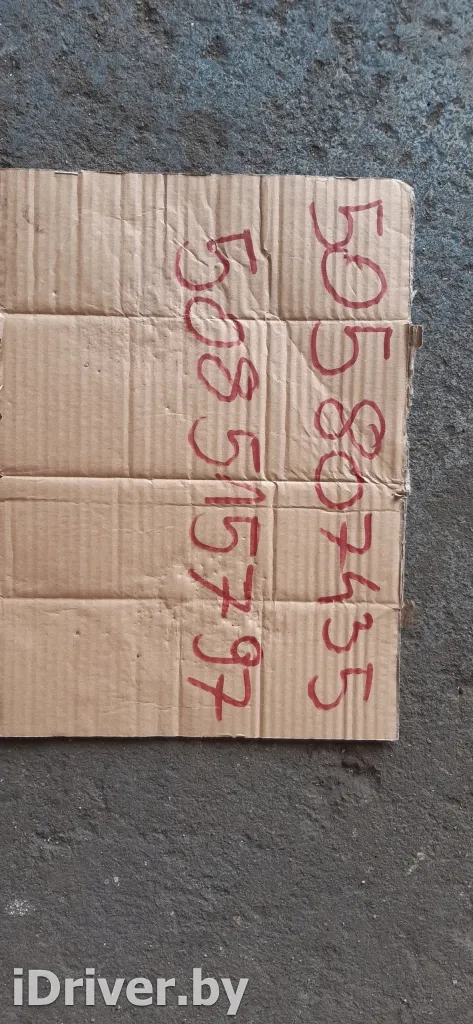 505 807435
508 515797
iDriver.by